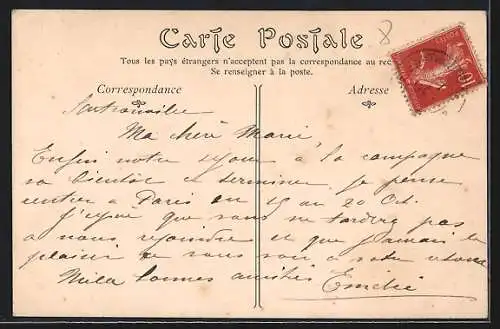 8
Carte Postale
Tous les pays étrangers n'acceptent pas la correspondance au rec
Se renseigner à la poste.
Correspondance
Adresse
POSTES
10
Ma chère Marie
Enfin notre séjour à la campagne
va bientôt se terminer je pense
rentrer à Paris du 15 au 20 Oct.
J'espère que vous ne tardirez pas
a nous rejoindre et que j'aurai le
plaisir de vous voir à votre retour
Mille bonnes amitiés Emélie